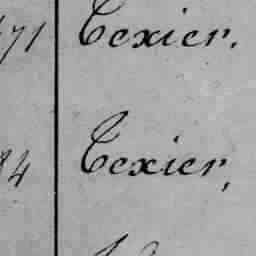 71 Texier.
84 Texier,